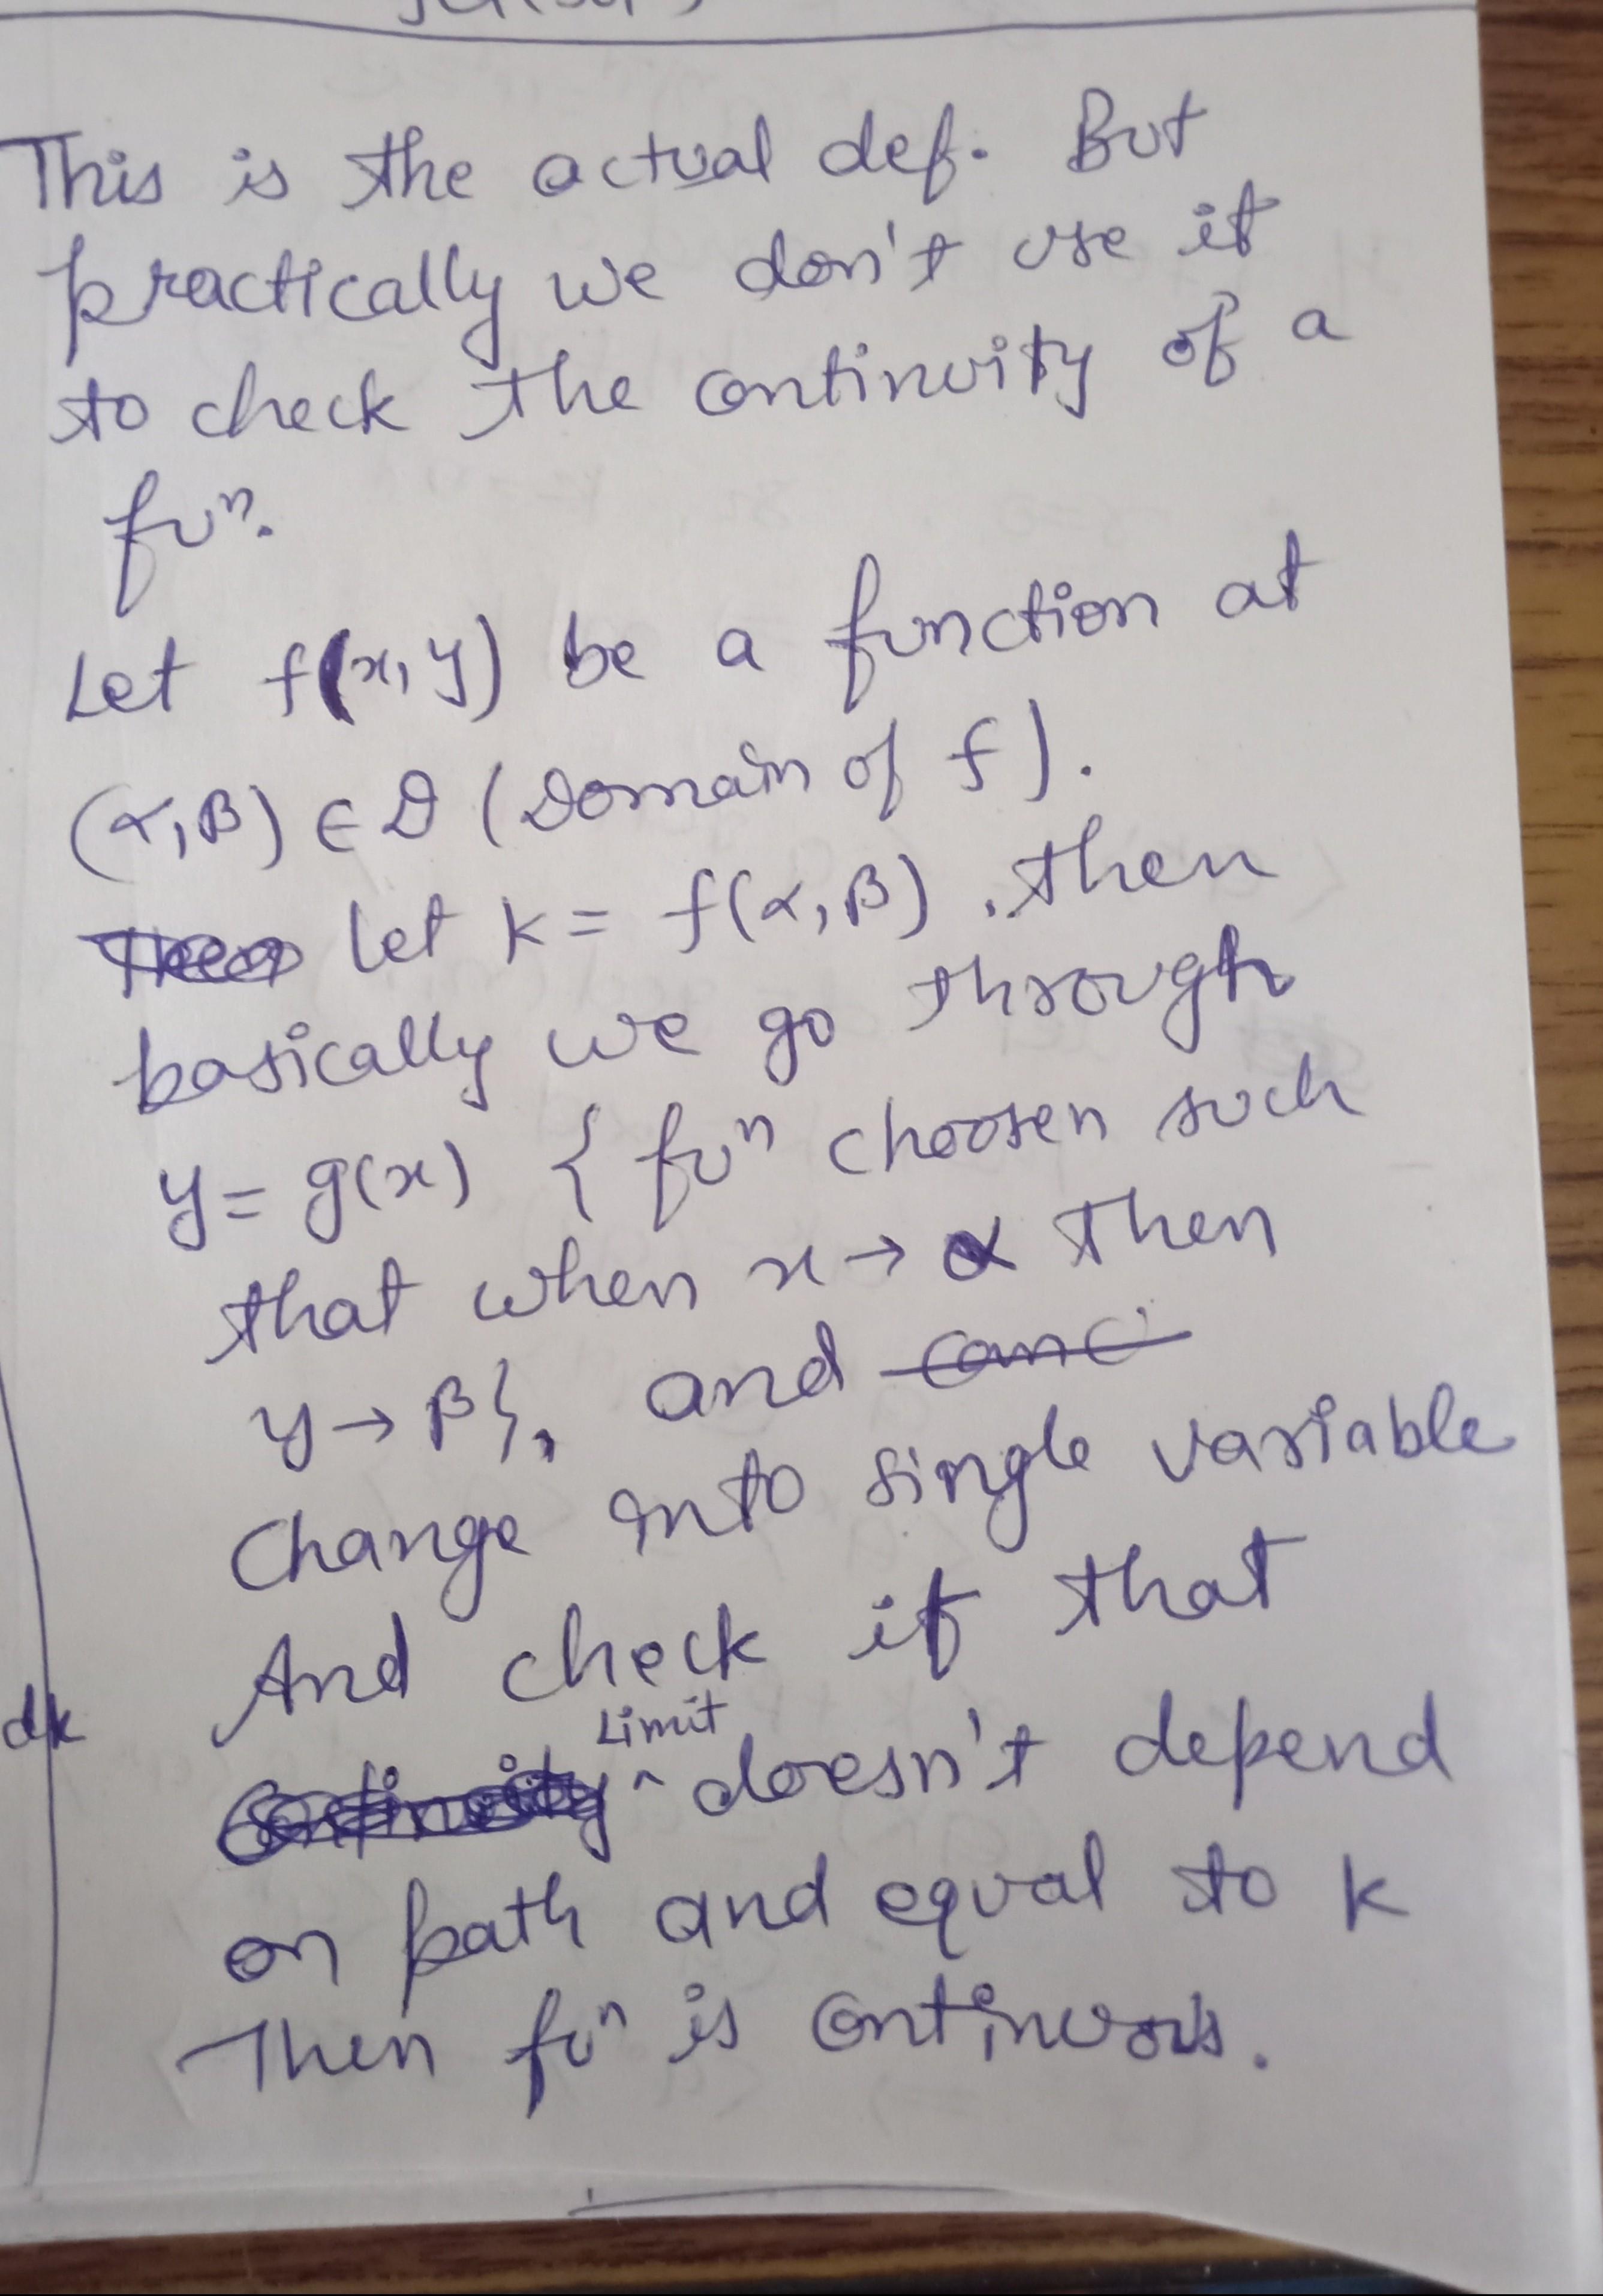 This is the actual def. But
practically we don't use it
to check the continuity of a
fuⁿ.
Let f(x, y) be a function at
(α, β) ∈ D (Domain of f).
let k = f(α, β) . then
basically we go through
y = g(x) { fuⁿ choosen such
that when x → α then
y → β}, and
change into single variable
And check if that
dk
Limit
doesn't depend
on path and equal to k
Then fuⁿ is continuous.